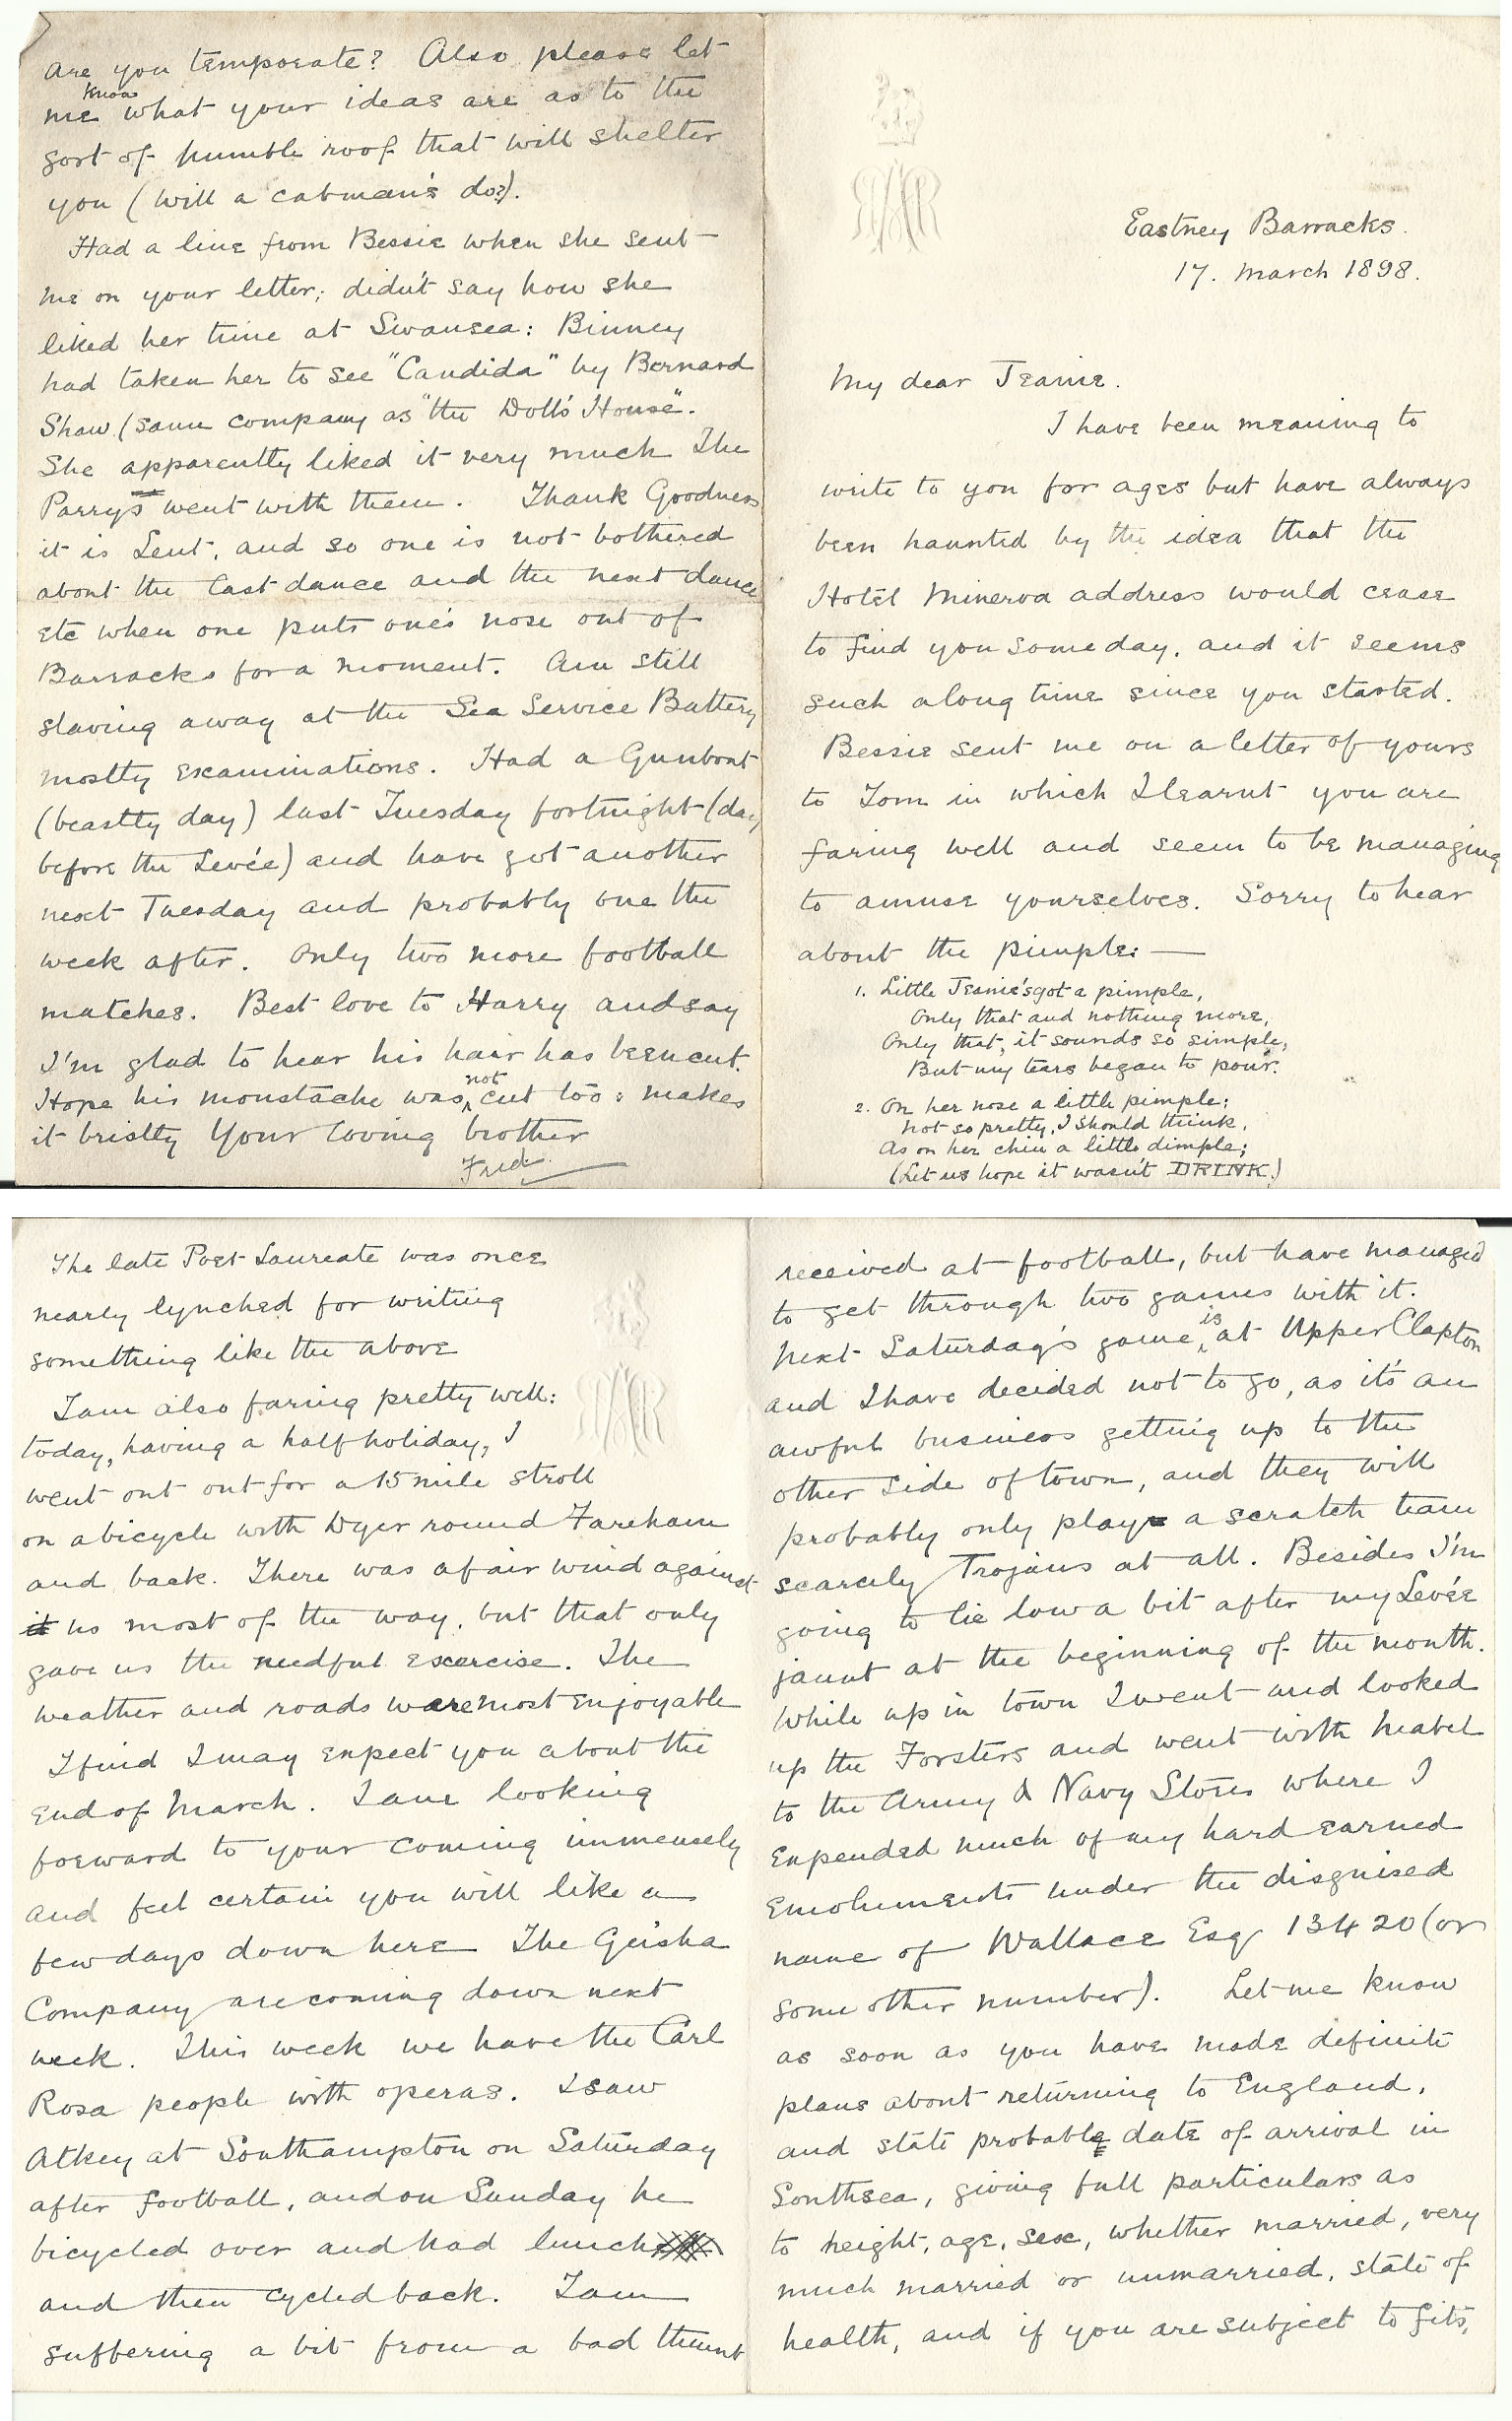 Eastney Barracks.
17. March 1898.
My dear Jeanie.
I have been meaning to
write to you for ages but have always
been haunted by the idea that the
Hotel Minerva address would cease
to find you someday, and it seems
such along time since you started.
Bessie sent me on a letter of yours
to Tom in which I learnt you are
faring well and seem to be managing
to amuse yourselves. Sorry to hear
about the pimple: —
1. Little Jeanie's got a pimple,
Only that and nothing more,
Only that, it sounds so simple,
But my tears began to pour.
2. On her nose a little pimple;
Not so pretty, I should think,
As on her chin a little dimple;
(Let us hope it wasn't DRINK)
The late Poet Laureate was once
nearly lynched for writing
something like the above
I am also faring pretty well:
today, having a half holiday, I
went out out for a 15 mile stroll
on a bicycle with Dyer round Fareham
and back. There was a fair wind against
it us most of the way, but that only
gave us the needful exercise. The
weather and roads were most enjoyable
I find I may expect you about the
end of March. I am looking
forward to your coming immensely
and feel certain you will like a
few days down here The Geisha
Company are coming down next
week. This week we have the Carl
Rosa people with operas. I saw
Atkey at Southampton on Saturday
after football, and on Sunday he
bicycled over and had lunch
and then cycled back. I am
suffering a bit from a bad thumb
received at football, but have managed
to get through two games with it.
Next Saturday's game is at Upper Clapton
and I have decided not to go, as it's an
awful business getting up to the
other side of town, and they will
probably only play a scratch team
scarcely Trojans at all. Besides I'm
going to lie low a bit after my Levée
jaunt at the beginning of the month.
While up in town I went and looked
up the Forsters and went with Mabel
to the Army & Navy Stores where I
expended much of my hard earned
emoluments under the disguised
name of Wallace Esq 13420 (or
some other number). Let me know
as soon as you have made definite
plans about returning to England,
and state probable date of arrival in
Southsea, giving full particulars as
to height, age, sex, whether married, very
much married or unmarried, state of
health, and if you are subject to fits,
are you temperate? Also please let
me know what your ideas are as to the
sort of humble roof that will shelter
you (will a cabman's do?).
Had a line from Bessie when she sent
me on your letter; didn't say how she
liked her time at Swansea: Binney
had taken her to see "Candida" by Bernard
Shaw (same company as "the Doll's House".
She apparently liked it very much The
Parrys went with them. Thank Goodness
it is Lent, and so one is not bothered
about the last dance and the next dance
etc when one puts one's nose out of
Barracks for a moment. Am still
slaving away at the Sea Service Battery
mostly examinations. Had a Gunboat
(beastly day) last Tuesday fortnight (day
before the Levée) and have got another
next Tuesday and probably one the
week after. Only two more football
matches. Best love to Harry and say
I'm glad to hear his hair has been cut.
Hope his moustache was not cut too: makes
it bristly Your loving brother
Fred.